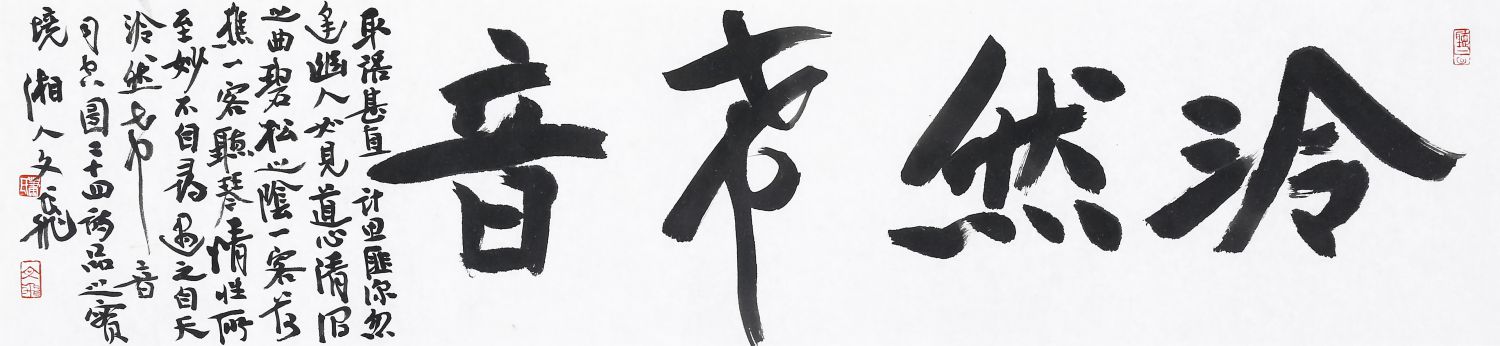 泠然希音
取語甚直計思匪深忽
逢幽人如見道心清涧
之曲碧松之陰一客荷
樵一客聽琴情性所
至妙不自尋遇之自天
泠然希音
司空圖二十四詩品之實
境 湘人文飛